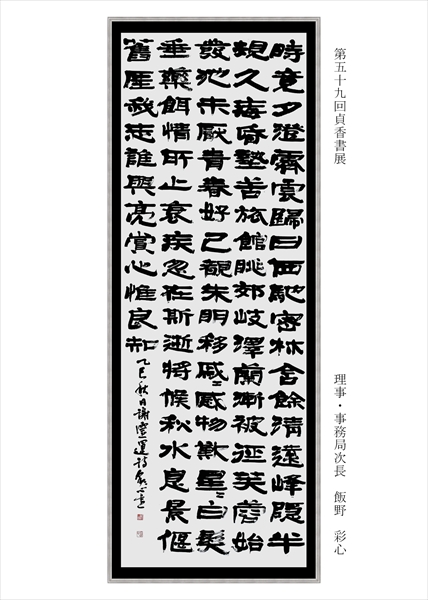 第五十九回貞香書展
時竟夕澄霽雲歸日西馳密林含餘清遠峰隱半
規久痗昏墊苦旅館眺郊岐澤蘭漸被徑芙蓉始
發池未厭青春好已覩朱明移慼〻感物歎星〻白髮
垂藥餌情所止衰疾忽在斯逝將候秋水息景偃
舊崖我志誰與亮賞心惟良知 乙巳秋日謝靈運詩 彩心書
理事・事務局次長 飯野 彩心